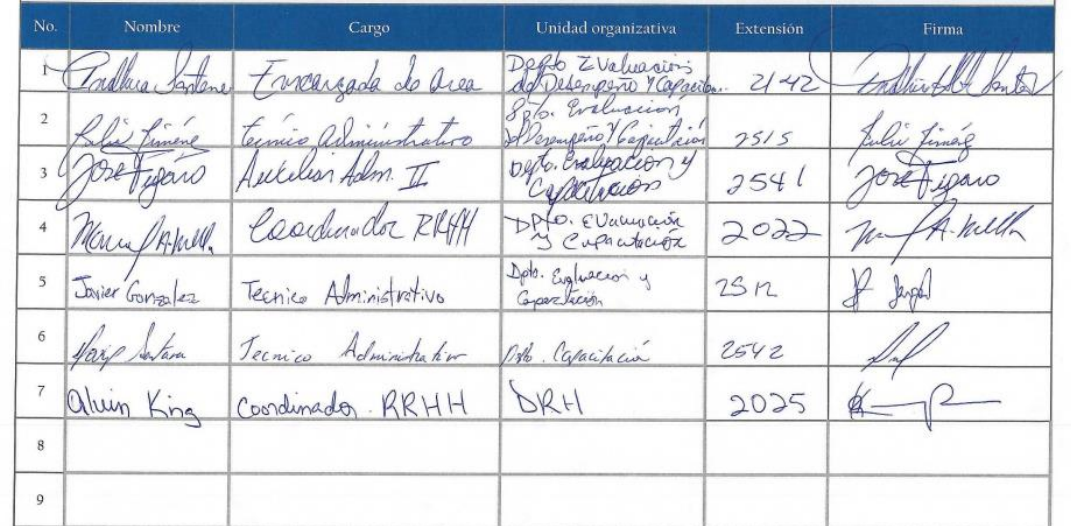 No. Nombre Cargo Unidad organizativa Extensión Firma
1 Santana Encargada de area Depto Evaluación del Desempeño y Capacitac. 2142
2 Julio Jiménez Técnico administrativo Dpto. Evaluación del Desempeño y Capacitación 2515 Julio Jiménez
3 José Figaro Auxiliar Adm. II Depto. Evaluacion y Capacitacion 2541 José Figaro
4 A. Mella Coordinador RRHH Dpto. Evaluación y Capacitación 2022 A. Mella
5 Javier Gonzalez Tecnico Administrativo Dpto. Evaluacion y Capacitación 2512
6 Santana Tecnico Administrativo Dpto. Capacitación 2542
7 Alvin King Coordinador RRHH DRH 2025
8
9